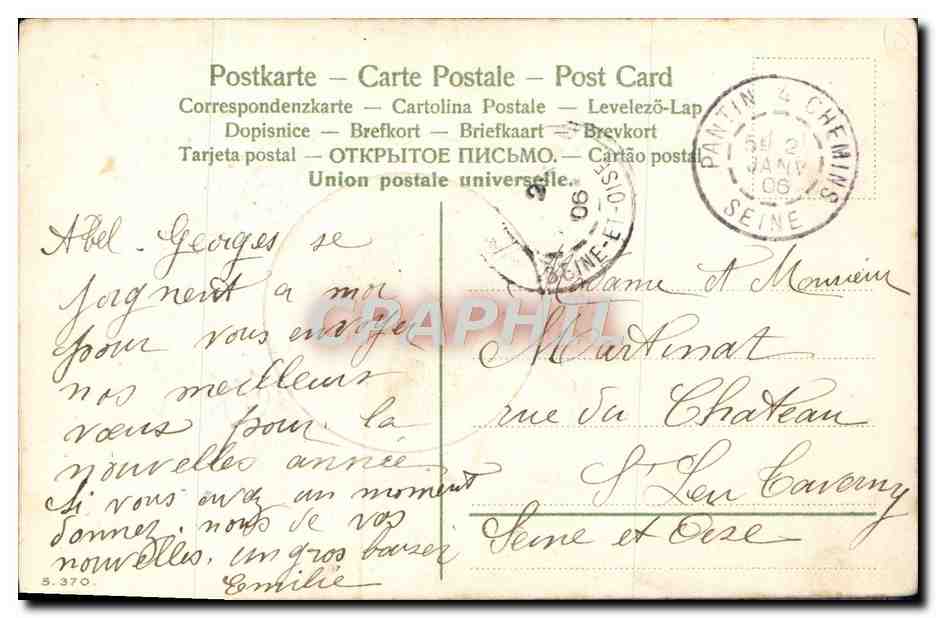 Postkarte – Carte Postale – Post Card
Correspondenzkarte – Cartolina Postale – Levelező-Lap
Dopisnice – Brefkort – Briefkaart – Brevkort
Tarjeta postal – ОТКРЫТОЕ ПИСЬМО. – Cartão postal
Union postale universelle.
PANTIN 4 CHEMINS
2
JANV
06
SEINE
2
06
SEINE-ET-OISE
Abel - Georges se
joignent a moi
pour vous envoyer
nos meilleurs
voeus pour la
nouvelles année
Si vous avez un moment
donnez. nous de vos
nouvelles. un gros baiser
Emilie
Madame et Monsieur
Martinat
rue du Chateau
St Leu Taverny
Seine et Oise
S. 370.
CPAPHIL